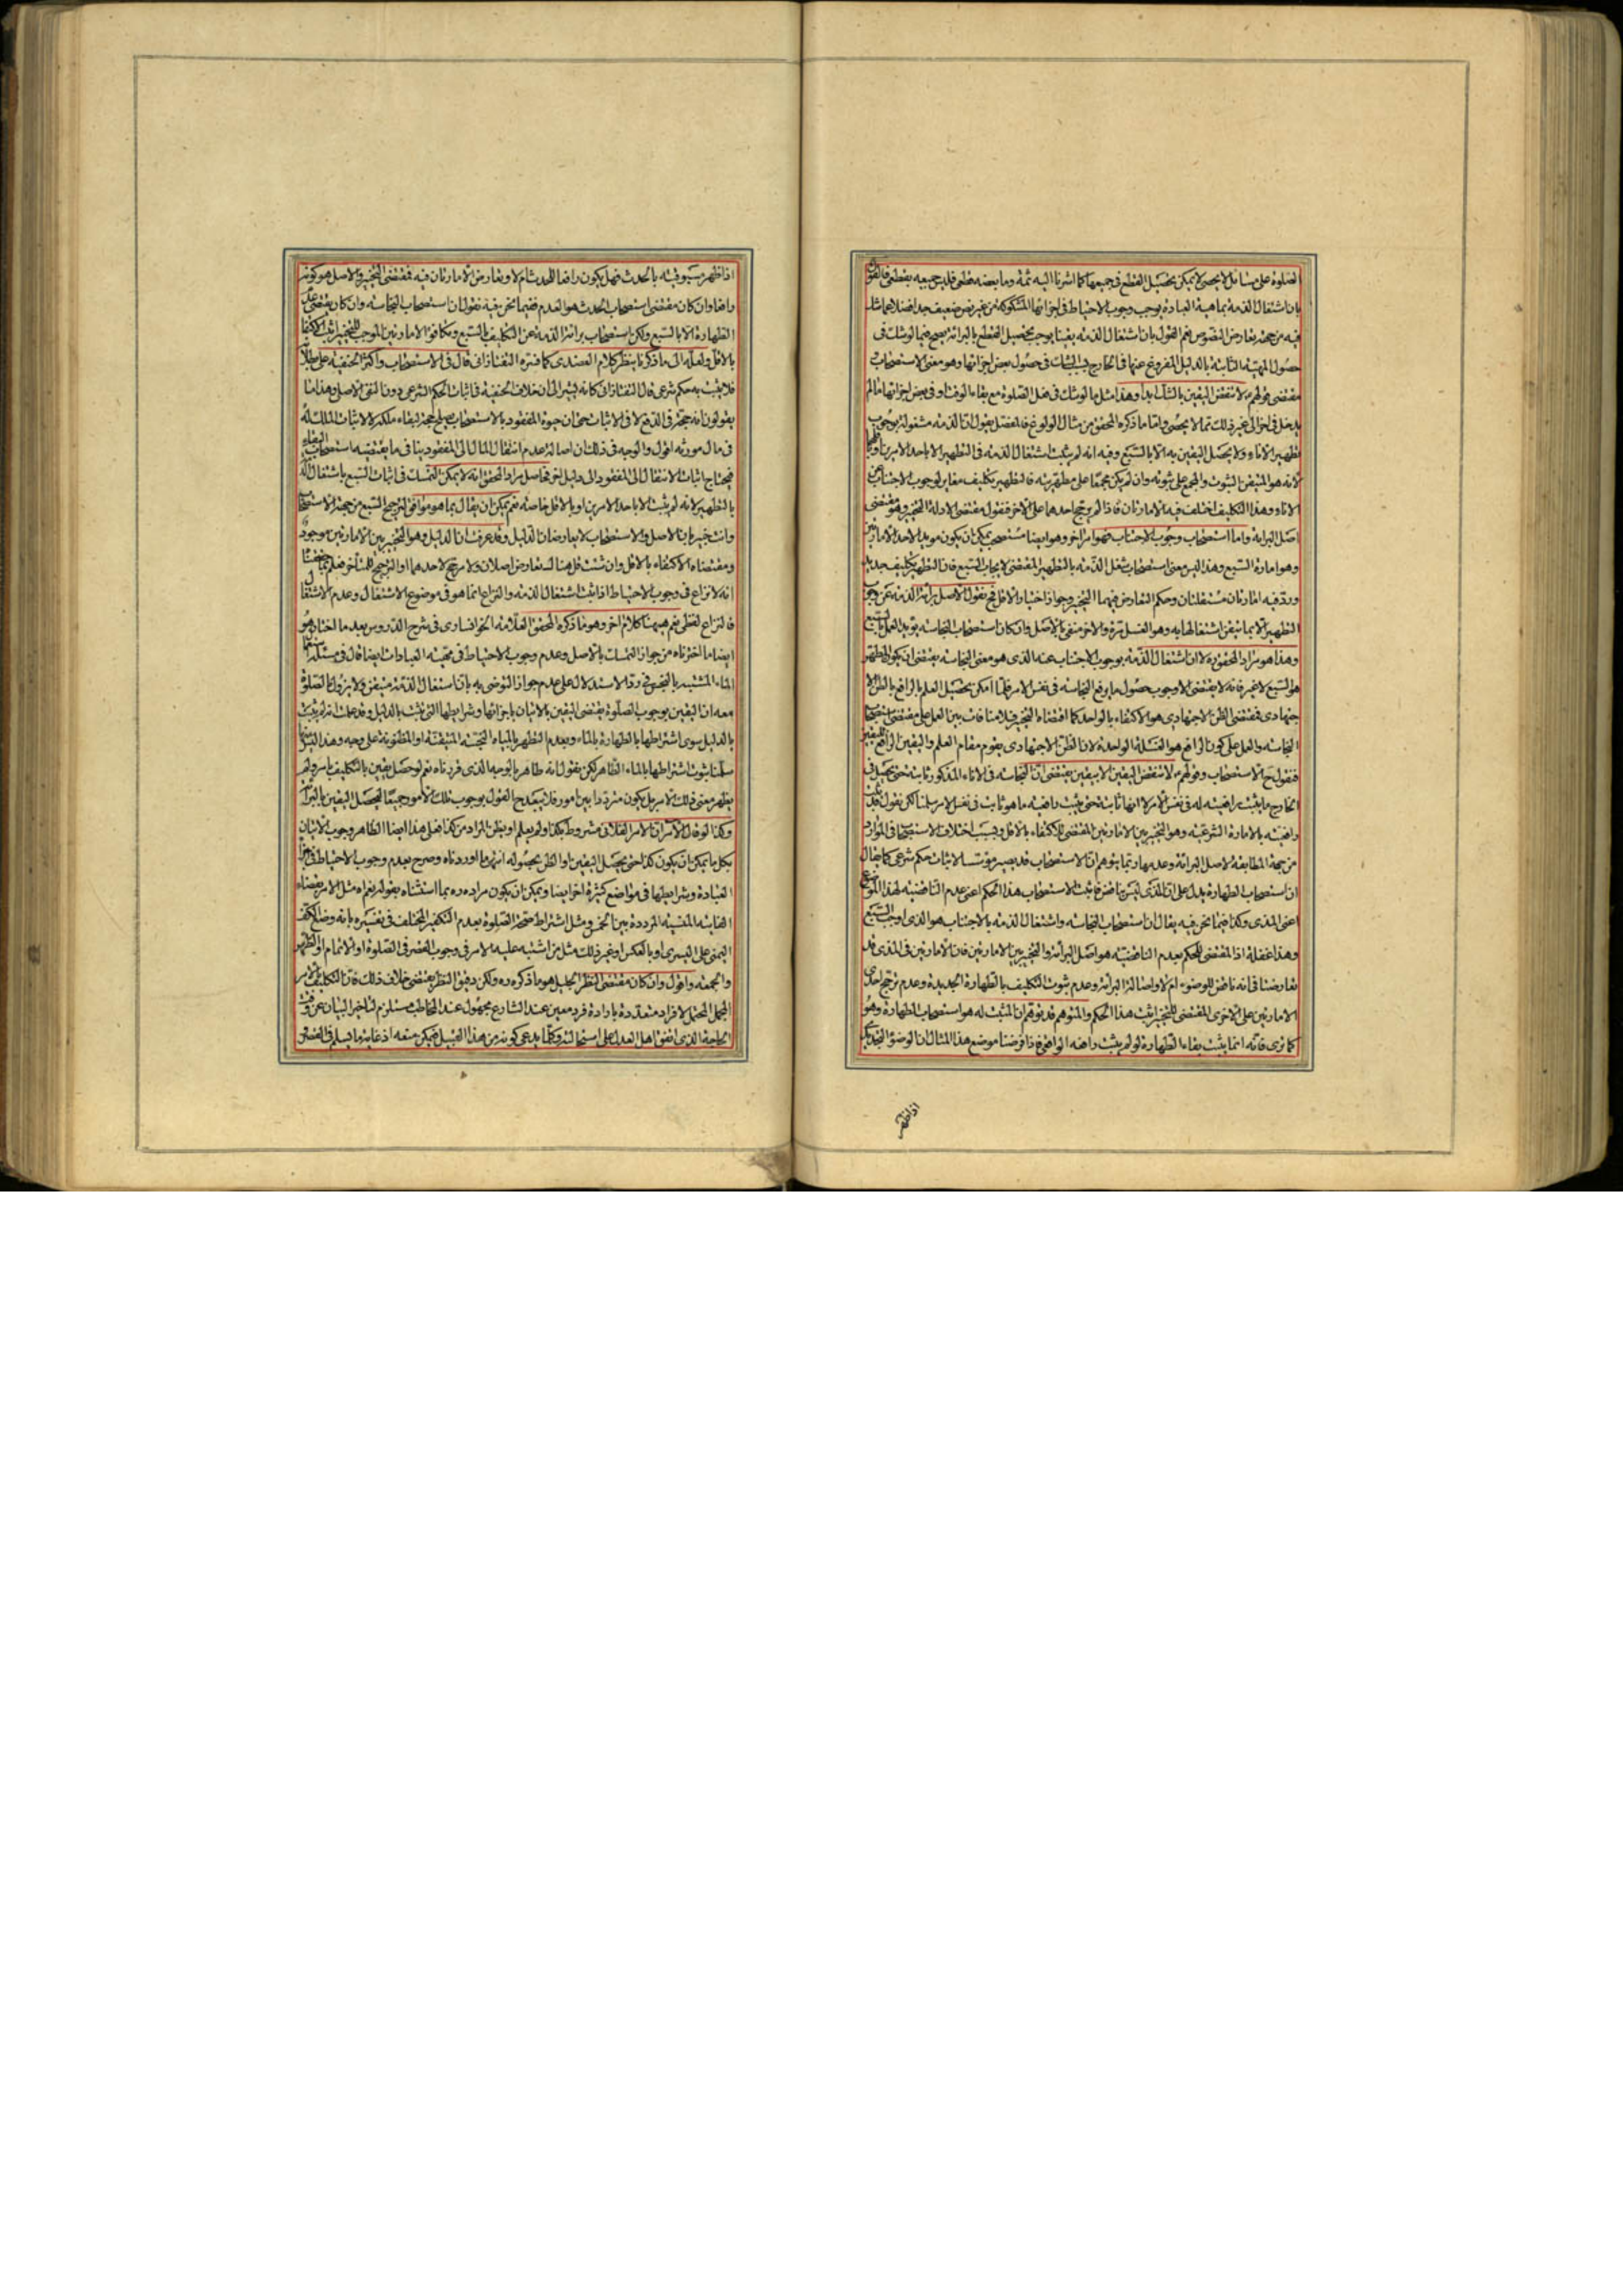 الصلوة على مسائل لا يحصى لا يمكن تحصيل القطع فى جميعها كما اشرنا اليه ثمة وما بعضه قطعى فليس جميعه بقطعى فالقول
بان اشتغال الذمة بماهية العبادة يوجب وجوب الاحتياط فى اجزائها المشكوكة من غير نص ضعيف جدا فضلا عما شك
فيه من جهة تعارض النصوص نعم القول بان اشتغال الذمة يقينا يوجب تحصيل القطع بالبرائة يصح فيما لو شك فى
حصول المهية الثابتة بالدليل المفروغ عنها فى الخارج بسبب الشك فى حصول بعض اجزائها وهو معنى الاستصحاب
مقتضى قولهم لا تنقض اليقين بالشك ابدا وهذا مثل ما لو شك فى فعل الصلوة مع بقاء الوقت او فى بعض اجزائها ما لم
يدخل فى اخر الى غير ذلك مما لا يحصى واما ما ذكره المحقق من مثال الولوغ فالمفصل يقول ان الذمة مشغولة بوجوب
تطهير الاناء ولا يحصل اليقين به الا بالسبع وفيه انه لم يثبت اشتغال الذمة فى التطهير الا باحد الامرين
لانه هو المتيقن الثبوت والمجمع على ثبوته وان لم يكن مجمعا على مطهريته فالتطهير تكليف مغاير لوجوب الاجتناب عن
الاناء وهذا التكليف اختلف فيه الامارتان فاذا لم يرجح احدهما على الاخر فنقول مقتضى الادلة التخيير وهو مقتضى
اصل البرائة واما استصحاب وجوب الاجتناب فهو امر اخر وهو ايضا مستصحب يمكن ان يكون مويدا لاحد الامارتين
وهو امارة السبع وهذا ليس معنى استصحاب شغل الذمة بالتطهير المقتضى لايجاب السبع فان التطهير تكليف جديد
ورد فيه امارتان مستقلتان وحكم التعارض فيهما التخيير وجواز اختيار الاقل فح نقول الاصل برائة الذمة عن وجوب
التطهير الا بما تيقن اشتغالها به وهو الغسل مرة والاخر منفى بالاصل وان كان استصحاب النجاسة يويد العمل بالسبع
وهذا هو مراد المحقق ره لا ان اشتغال الذمة بوجوب الاجتناب عنه الذى هو معنى النجاسة يقتضى ان يكون المطهر
هو السبع لا غير فانه لا يقتضى الا وجوب حصول ما يرفع النجاسة فى نفس الامر فلما امكن تحصيل العلم بالرافع بالظن الا
جتهادى فمقتضى الظن الاجتهادى هو الاكتفاء بالواحد كما اقتضاه التخيير فلا منافات بين العمل على مقتضى استصحاب
النجاسة والعمل على كون الرافع هو الغسلة الواحدة لان الظن الاجتهادى يقوم مقام العلم واليقين
فنقول ح الاستصحاب وقولهم ع لا تنقض اليقين الا بيقين يقتضى ان النجاسة فى الاناء المذكور ثابتة حتى يحصل فى
الخارج ما يثبت رافعيته له فى نفس الامر لا انها ثابتة حتى يثبت رافعية ما هو ثابت فى نفس الامر سلمنا لكن نقول قد ثبت
رافعيته بالامارة الشرعية وهو التخيير بين الامارتين المقتضى للاكتفاء بالاقل وبسبب اختلاف الاستصحاب فى الموارد
من جهة المطابقة لاصل البرائة وعدمها ربما يتوهم ان الاستصحاب قد يصير موسسا لاثبات حكم شرعى كما يقال
ان استصحاب الطهارة يدل على ان المذى ليس بناقض فاثبت الاستصحاب هذا الحكم اعنى عدم الناقضية لهذا الموضوع
اعنى المذى وكذا فيما نحن فيه يقال ان استصحاب النجاسة واشتغال الذمة بالاجتناب هو الذى اوجب السبع
وهذا غفلة اذ المقتضى للحكم بعدم الناقضية هو اصل البرائة والتخيير بين الامارتين فان الامارتين فى المذى قد
تعارضتا فى انه ناقض للوضوء ام لا واصالة البرائة وعدم ثبوت التكليف بالطهارة الجديدة وعدم ترجيح احدى
الامارتين على الاخرى المقتضى للتخيير اثبت هذا الحكم والمتوهم قد توهم ان المثبت له هو استصحاب الطهارة وهو
كما ترى فانه انما يثبت بقاء الطهارة لو لم يثبت رافعه الواقعى فاذا فرضنا موضع هذا المثال ان الوضوء التجديدى
اذا ظهر
اذا ظهر مسبوقيته بالحدث فهل يكون رافعا للحدث ام لا وتعارض الامارتان فيه فمقتضى التخيير والاصل هو كونه
رافعا وان كان مقتضى استصحاب الحدث هو العدم ففيما نحن فيه نقول ان استصحاب النجاسة وان كان يقتضى عدم
الطهارة الا بالسبع ولكن استصحاب برائة الذمة عن التكليف بالسبع وتكافؤ الامارتين الموجب للتخيير اثبت الاكتفاء
بالاقل ولعله الى ما ذكرنا ينظر كلام العضدى كما فسره التفتازانى قال فى الاستصحاب واكثر الحنفية على بطلانه
فلا يثبت به حكم شرعى قال التفتازانى كانه يشير الى ان خلاف الحنفية فى اثبات الحكم الشرعى دون النفى الاصلى وهذا ما
يقولون انه حجة فى الدفع لا فى الاثبات حتى ان حيوة المفقود بالاستصحاب يصلح حجة لبقاء ملكه لا لاثبات الملك له
فى مال مورثه اقول والوجه فى ذلك ان اصالة عدم انتقال المال الى المفقود ينافى ما يقتضيه استصحاب البقاء
فيحتاج اثبات الانتقال الى المفقود الى دليل اخر فحاصل مراد المحقق انه لا يمكن التمسك فى اثبات السبع باشتغال الذمة
بالتطهير لانه لم يثبت الا باحد الامرين او بالاقل خاصة نعم يمكن ان يقال بما هو موافق لترجيح السبع من جهة الاستصحاب
وانت خبير بان الاصل والاستصحاب لا يعارضان الدليل وقد عرفت ان الدليل وهو التخيير بين الامارتين موجود
ومقتضاه الاكتفاء بالاقل وان شئت قل هنا تعارض اصلان ولا مرجح لاحدهما او الترجيح للمتاخر فعلم بما حققنا
انه لا نزاع فى وجوب الاحتياط اذا ثبت اشتغال الذمة والنزاع انما هو فى موضوع الاشتغال وعدم الاشتغال
فالنزاع لفظى نعم هيهنا كلام اخر وهو ما ذكره المحقق العلامة الخوانسارى فى شرح الدروس بعد ما اختار هو
ايضا ما اخترناه من جواز التمسك بالاصل وعدم وجوب الاحتياط فى مهية العبادات ايضا قال فى مسئلة استعمال
الماء المشتبه بالنجس فى رد الاستدلال على عدم جواز التوضى به بان اشتغال الذمة متيقن ولا يزول الا بالصلوة
معه ان اليقين بوجوب الصلوة يقتضى اليقين بالاتيان باجزائها وشرايطها التى تثبت بالدليل وقد علمت انه لم يثبت
بالدليل سوى اشتراطها بالطهارة بالماء وبعدم التطهر بالمياه النجسة المتيقنة او المظنونة على وجه وهذا ليس منها
سلمنا ثبوت اشتراطها بالماء الطاهر لكن نقول انه طاهر بالوجه الذى قررناه نعم لو حصل يقين بالتكليف بامر ولم
يظهر معنى ذلك الامر بل يكون مترددا بين امور فلا يبعد ح القول بوجوب تلك الامور جميعا ليحصل اليقين بالبرائة
وكذا لو قال الامر ان الامر الفلانى مشروط بكذا ولم يعلم او يظن المراد من كذا فعلى هذا ايضا الظاهر وجوب الاتيان
بكل ما يمكن ان يكون كذا حتى يحصل اليقين او الظن بحصوله انتهى ما اوردناه وصرح بعدم وجوب الاحتياط فى اجزاء
العبادة وشرايطها فى مواضع كثيرة اخر ايضا ويمكن ان يكون مراده ره بما استثناه بقوله نعم اه مثل الامر بقضاء
الفائتة المنسية المرددة بين الخمس ومثل اشتراط صحة الصلوة بعدم التكفير المختلف فى تفسيره بانه وضع الكف
اليمنى على اليسرى او بالعكس او غير ذلك مثل من اشتبه عليه الامر فى وجوب القصر فى الصلوة او الاتمام او الظهر
والجمعة واقول وان كان مقتضى النظر الجليل هو ما ذكره ره ولكن دقيق النظر يقتضى خلاف ذلك فان التكليف بالامر
المجمل المحتمل لافراد متعددة بارادة فرد معين عند الشارع مجهول عند المخاطب مستلزم لتاخير البيان عن وقت
الحاجة الذى اتفق اهل العدل على استحالته وكلما يدعى كونه من هذا القبيل فيمكن منعه اذ غاية ما يسلم فى القصر